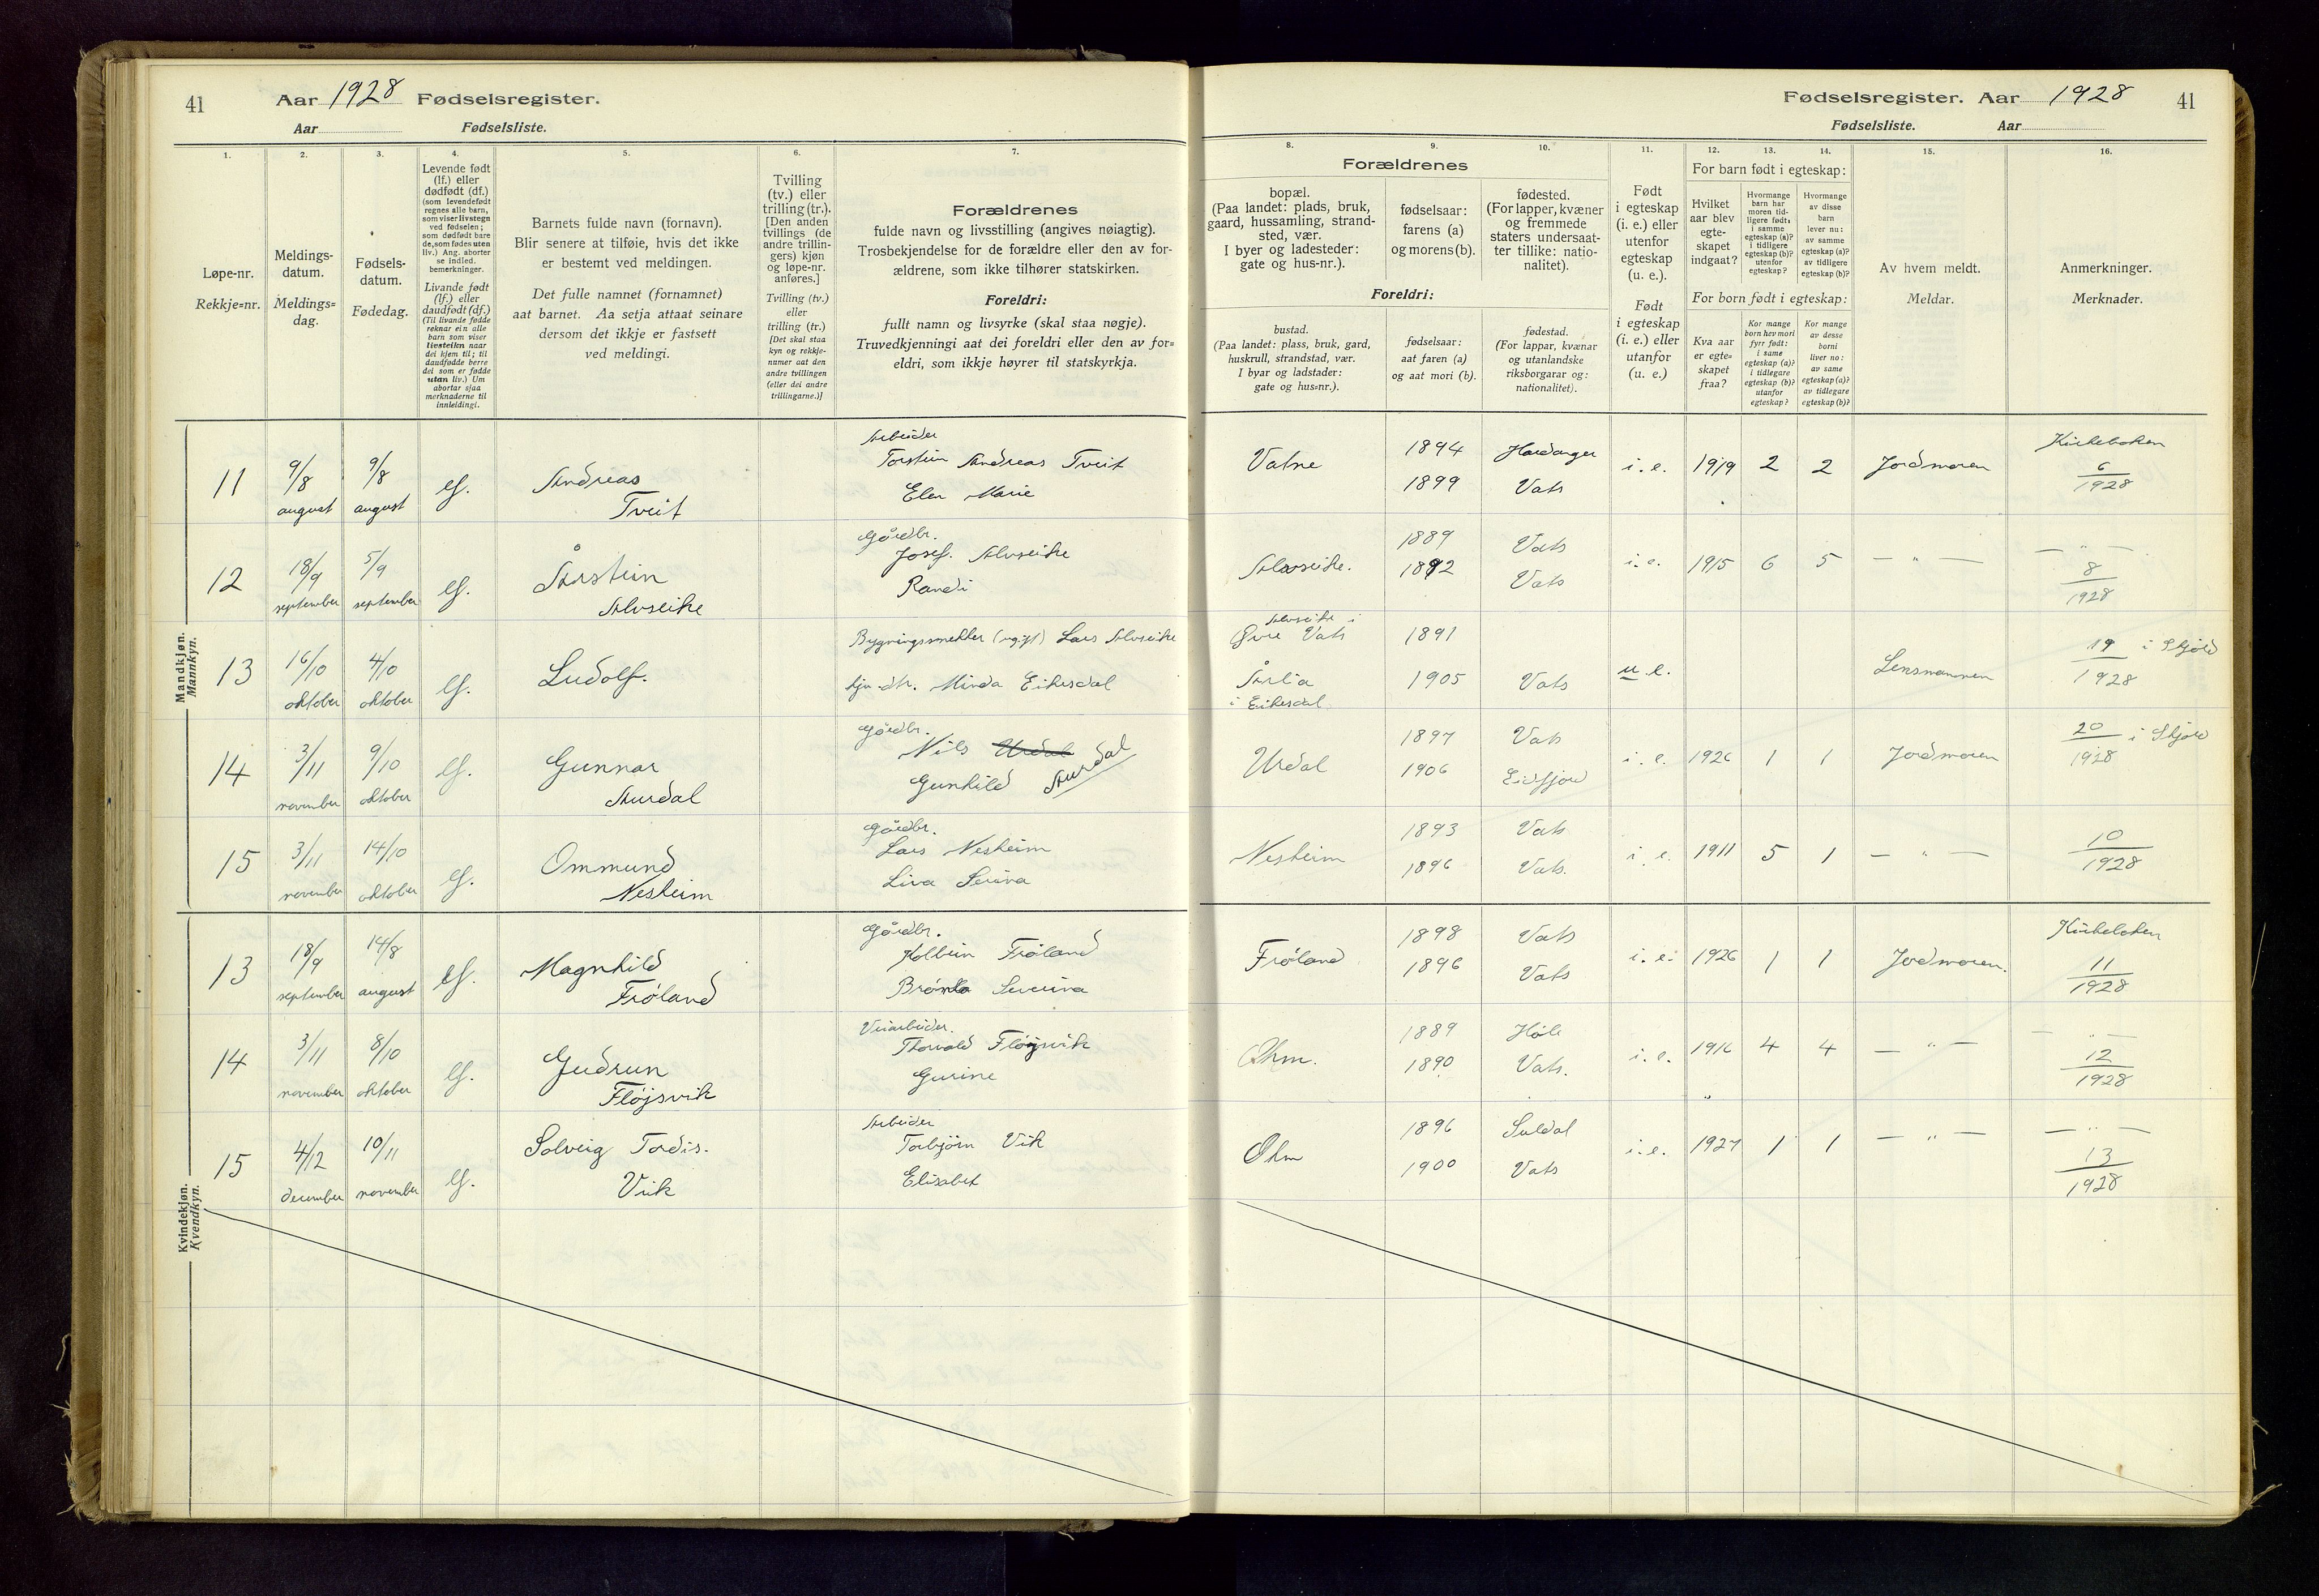 41
Aar 1928 Fødselsregister.
Aar Fødselsliste.
1.
Løpe-nr.
Rekkje=nr.
2.
Meldings-
datum.
Meldings=
dag.
3.
Fødsels-
datum.
Fødedag.
4.
Levende født
(lf.) eller
dødfødt (df.)
(som levendefødt
regnes alle barn,
som viser livstegn
ved fødselen;
som dødfødt bare
de, som fødes uten
liv.) Ang. aborter
se indled.
bemerkninger.
Livande født
(lf.) eller
daudfødt (df.)
(Til livande fødde
reknar ein alle
barn som viser
livsteikn naar
dei kjem til; til
daudfødde berre
dei som er fødde
utan liv.) Um
abortar sjaa
merknaderne til
innleidingi.
5.
Barnets fulde navn (fornavn).
Blir senere at tilføie, hvis det ikke
er bestemt ved meldingen.
Det fulle namnet (fornamnet)
aat barnet. Aa setja attaat seinare
dersom det ikkje er fastsett
ved meldingi.
6.
Tvilling
(tv.) eller
trilling (tr.).
[Den anden
tvillings (de
andre trillin-
gers) kjøn
og løpe-nr.
anføres.]
Tvilling (tv.)
eller
trilling (tr.)
[Det skal staa
kyn og rekkje-
numer aat den
andre tvillingen
(eller dei andre
trillingarne.)]
7.
Forældrenes
fulde navn og livsstilling (angives nøiagtig).
Trosbekjendelse for de forældre eller den av for-
ældrene, som ikke tilhører statskirken.
Foreldri:
fullt namn og livsyrke (skal staa nøgje).
Truvedkjenningi aat dei foreldri eller den av for=
eldri, som ikkje høyrer til statskyrkja.
Mandkjøn.
Mannkyn.
11 9/8 august 9/8 august lf. Andreas Tveit Arbeider Torstein Andreas Tveit Elen Marie
12 18/9 september 5/9 september lf. Årstein Alvseike Gårdbr. Josef Alvseike Randi
13 16/10 oktober 4/10 oktober lf. Ludolf. Bygningssnekker (ugift) Lars Alvseike Minda Eikesdal
14 3/11 november 9/10 oktober lf. Gunnar Aurdal Gårdbr. Nils Urdal Aurdal Gunhild
15 3/11 november 14/10 oktober lf. Ommund Nesheim Gårdbr. Lars Nesheim Liva Serina
Kvindekjøn.
Kvendkyn.
13 18/9 september 14/8 august lf. Magnhild Frøland Gårdbr. Kolbein Frøland Severina
14 3/11 november 8/10 oktober lf. Gudrun Fløjsvik Veiarbeider. Thorvald Fløjsvik Gurine
15 4/12 december 10/11 november lf. Solveig Tordis. Vik Arbeider Torbjørn Vik Elisabet
Fødselsregister. Aar 1928 41
Fødselsliste. Aar
8.
Forældrenes
bopæl.
(Paa landet: plads, bruk,
gaard, hussamling, strand-
sted, vær.
I byer og ladesteder:
gate og hus-nr.).
Foreldri:
bustad.
(Paa landet: plass, bruk, gard,
huskrull, strandstad, vær.
I byar og ladstader:
gate og hus=nr.).
9.
fødselsaar:
farens (a)
og morens (b).
fødselsaar:
aat faren (a)
og aat mori (b).
10.
fødested.
(For lapper, kvæner
og fremmede
staters undersaat-
ter tillike: natio-
nalitet).
fødestad.
(For lappar, kvænar
og utanlandske
riksborgarar og:
nationalitet).
11.
Født
i egteskap
(i. e.) eller
utenfor
egteskap
(u. e.).
Født
i egteskap
(i. e.) eller
utanfor
(u. e.)
12. 13. 14.
For barn født i egteskap:
Hvilket
aar blev
egte-
skapet
indgaat?
Hvormange
barn har
moren tid-
ligere født,
i samme
egteskap (a)?
i tidligere
egteskap (b)?
utenfor
egteskap?
Hvormange
av disse
barn
lever nu:
av samme
egteskap (a)?
av tidligere
egteskap (b)?
For born født i egteskap:
Kva aar
er egte=
skapet
fraa?
Kor mange
born hev mori
fyrr født:
i same
egteskap (a)?
i tidlegare
egteskap (b)?
utanfor
egteskap?
Kor mange
av desse
borni
liver no:
av same
egteskap (a)?
av tidlegare
egteskap (b)?
15.
Av hvem meldt.
Meldar.
16.
Anmerkninger.
Merknader.
Vatne 1894 1899 Hardanger Vats i. e. 1919 2 2 Jordmoren Kirkeboken 6/1928
Alvseike. 1889 1892 Vats Vats i. e. 1915 6 5 — " — — " — 8/1928
Alvseike i Øvre Vats 1891 Årlia i Eikesdal 1905 Vats u. e. Lensmannen 19/1928 i Skjold
Urdal 1897 1906 Vats Eidfjord i. e. 1926 1 1 Jordmoren 20/1928 i Skjold
Nesheim 1893 1896 Vats Vats. i. e. 1911 5 1 — " — 10/1928
Frøland 1898 1896 Vats Vats i. e. 1926 1 1 Jordmoren. Kirkeboken 11/1928
Øhm. 1889 1890 Høle Vats. i. e. 1916 4 4 — " — — " — 12/1928
Øhm 1896 1900 Suldal Vats i. e. 1927 1 1 — " — — " — 13/1928